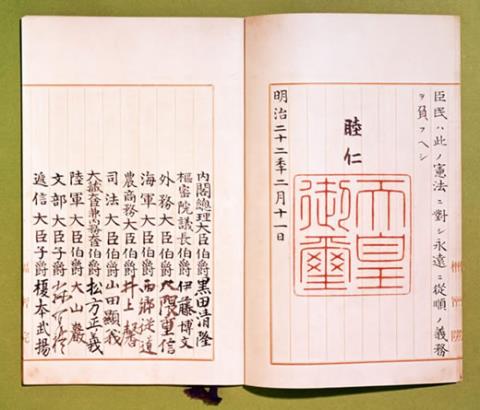 臣民ハ此ノ憲法ニ對シ永遠ニ從順ノ義務
ヲ負フヘシ
睦仁
天皇
御璽
明治二十二年二月十一日
內閣總理大臣伯爵黑田清隆
樞密院議長伯爵伊藤博文
外務大臣伯爵大隈重信
海軍大臣伯爵西鄕從道
農商務大臣伯爵井上馨
司法大臣伯爵山田顯義
大藏大臣兼內務大臣伯爵松方正義
陸軍大臣伯爵大山巖
文部大臣子爵森有禮
遞信大臣子爵榎本武揚